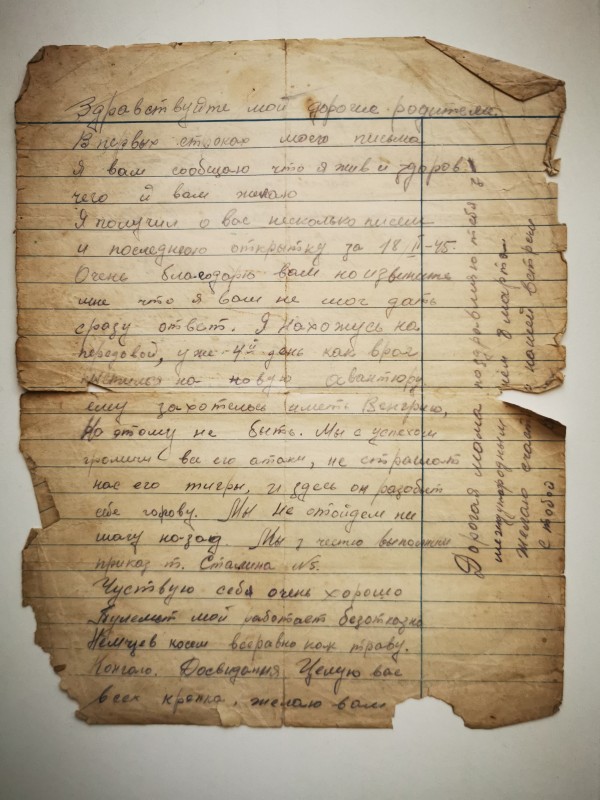 Здравствуйте мои дорогие родители.
В первых строках моего письма
Я вам сообщаю что я жив и здоров
чего и вам желаю
Я получил о вас несколько писем
и последнею открытку за 18 II-45.
Очень благодарю вам но извините
мне что я вам не мог дать
сразу ответ. Я нахожусь на
передовой, уже 4й день как враг
на новую авантюру
ему захотелось иметь Венгрию,
Но этому не быть. Мы с успехом
громим все его атаки, не страшат
нас его тигры, и здесь он разобьет
себе голову. Мы не отойдем ни
шагу назад. Мы з честю выполним
приказ т. Сталина №5.
Чуствую себя очень хорошо
Пулемет мой работает безотказно
Немцев косит всеравно как траву.
Кончаю. Досвидания Целую вас
всех крепко, желаю вам
Дорогая мама поздравляю тебя з
международным днем 8 марта
желаю счаст нашей встречи
с тобой